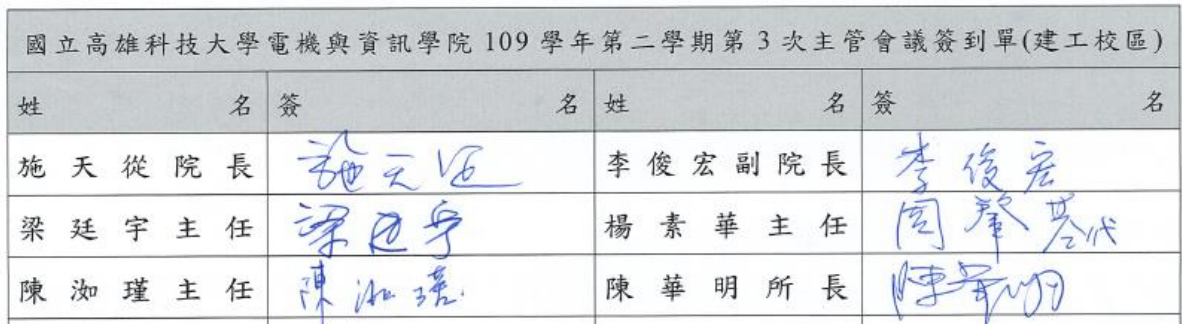 國立高雄科技大學電機與資訊學院 109 學年第二學期第 3 次主管會議簽到單(建工校區)
姓名 簽名 姓名 簽名
施天從院長 施天從 李俊宏副院長 李俊宏
梁廷宇主任 梁廷宇 楊素華主任 周肇基代
陳洳瑾主任 陳洳瑾 陳華明所長 陳華明